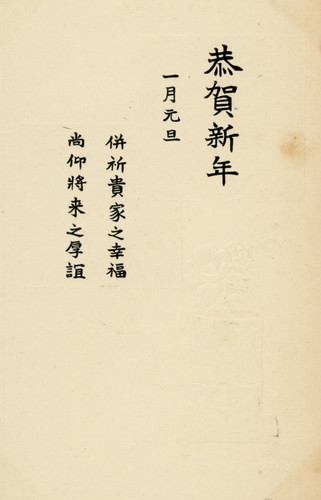 恭賀新年
一月元旦
併祈貴家之幸福
尚仰將来之厚誼